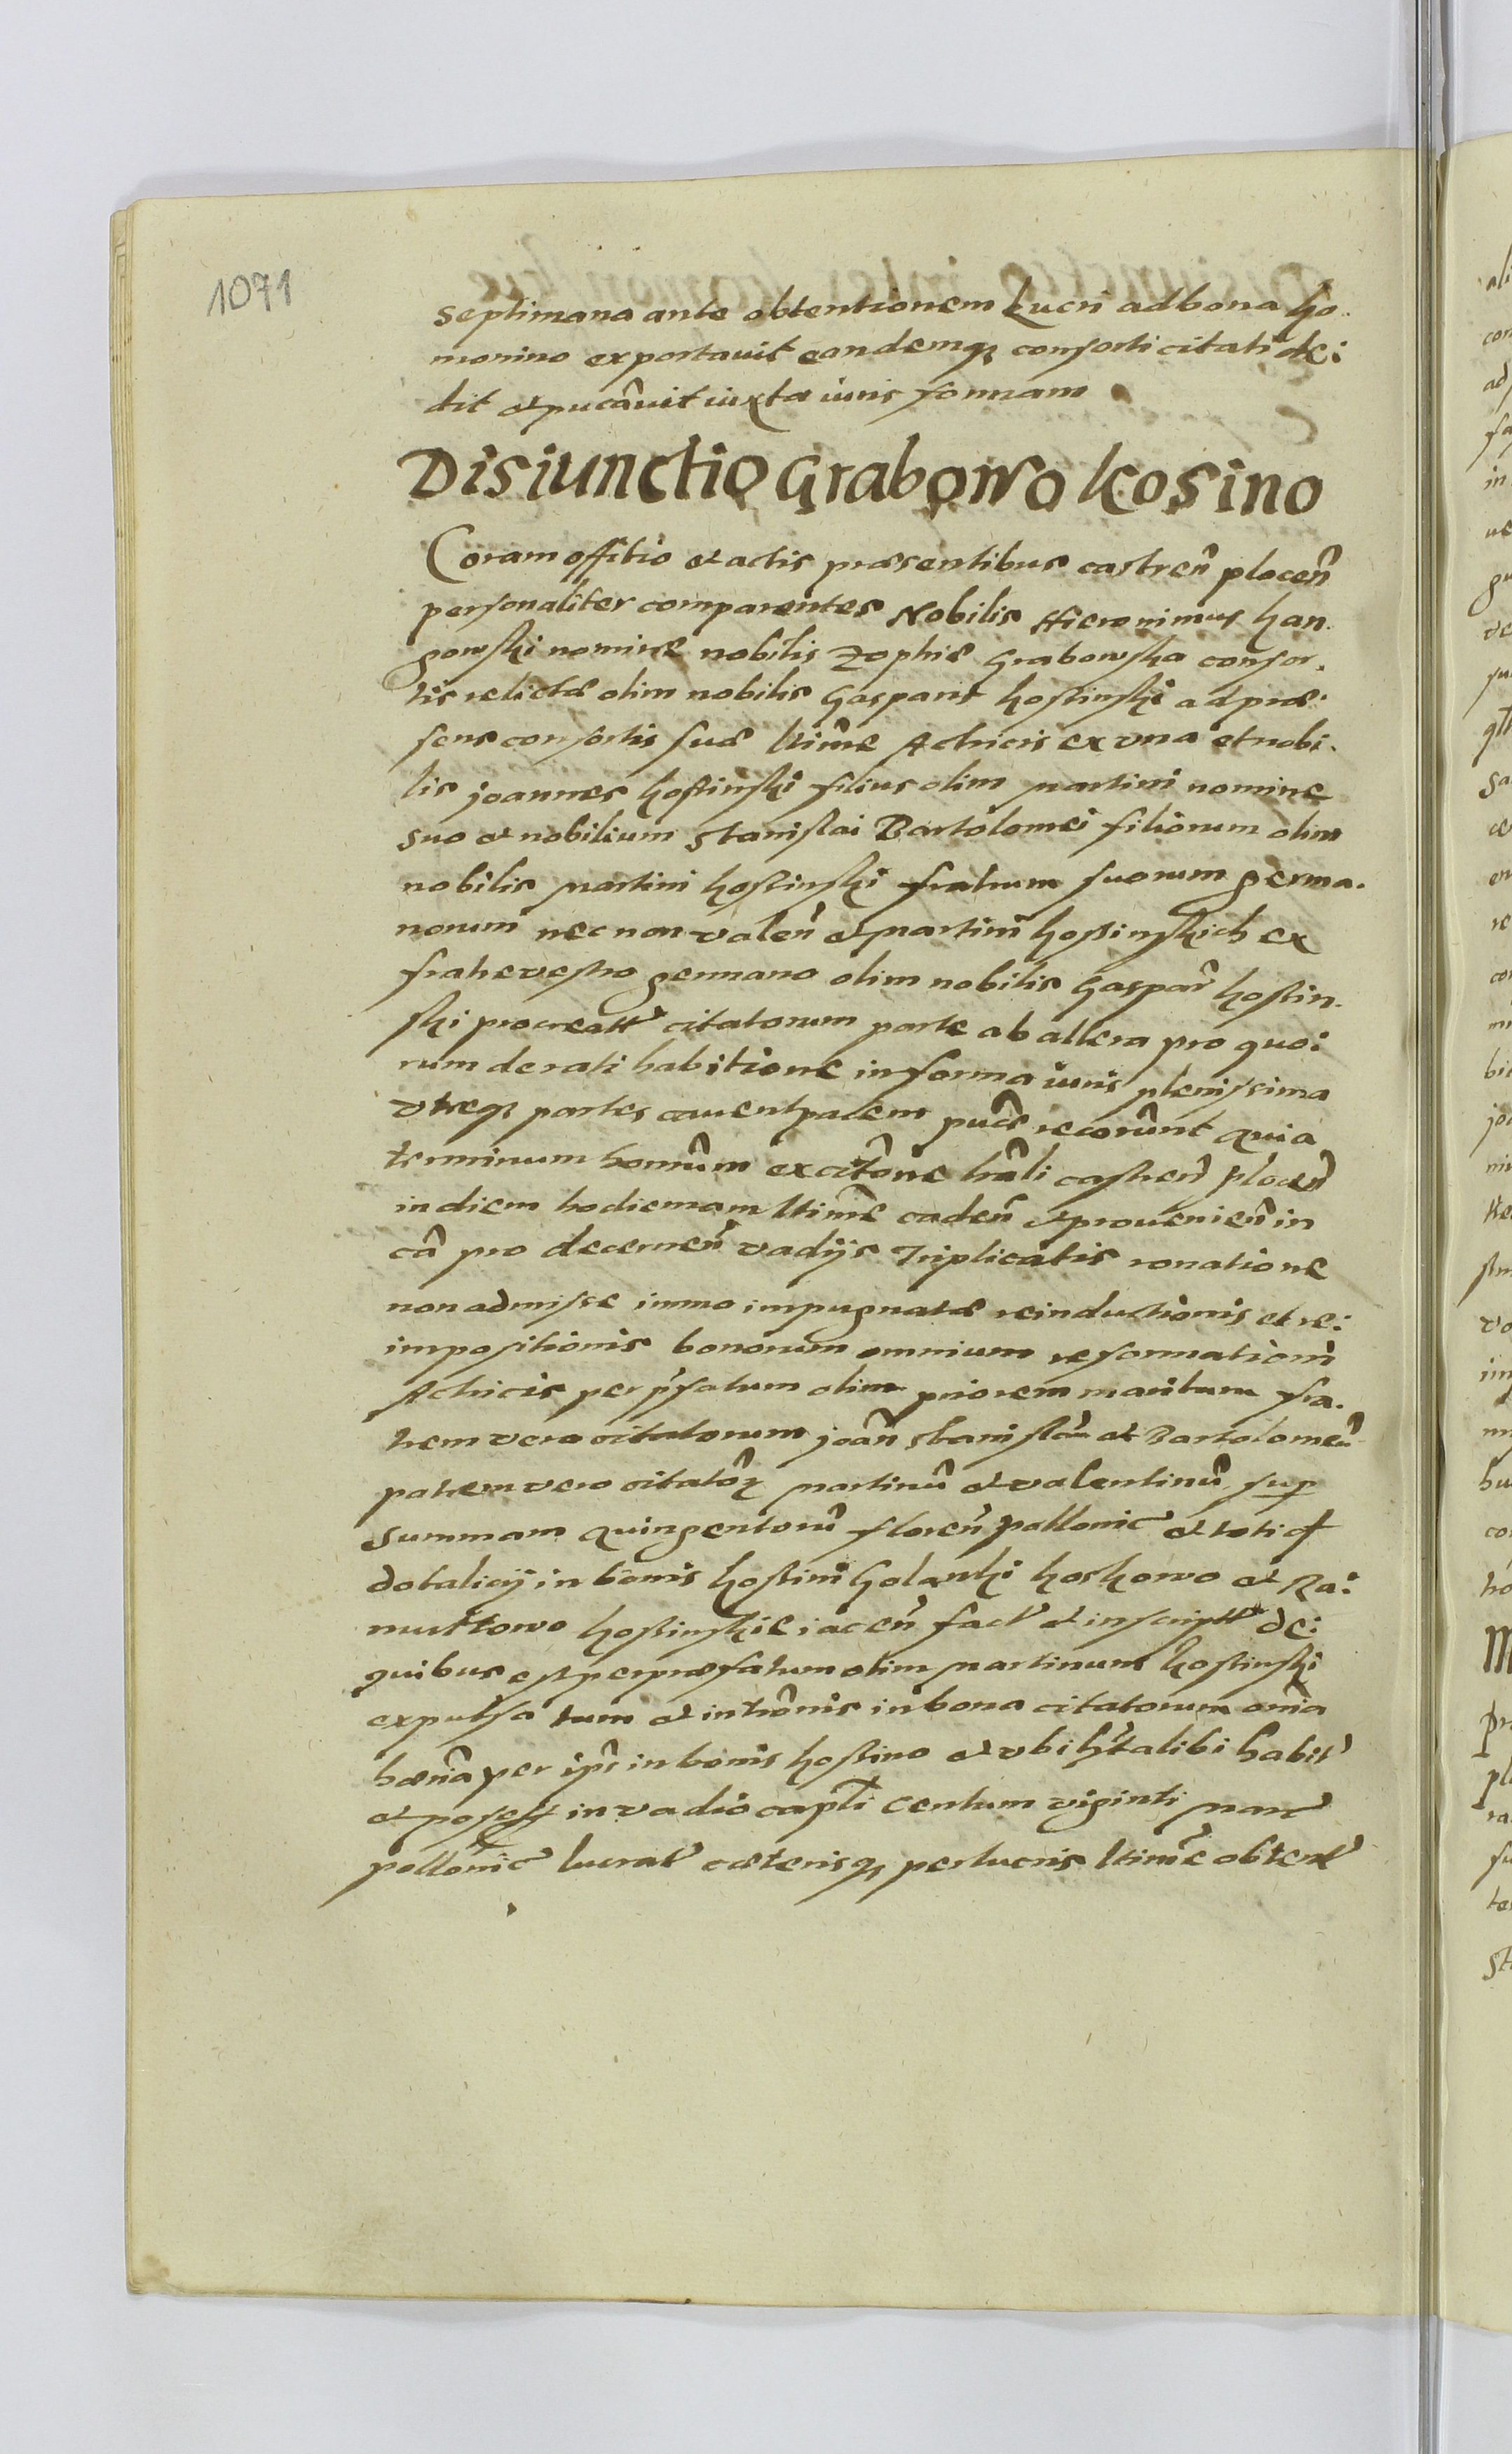 1071
septimana ante obtentionem Lucri ad bona ho..
monino exportauit eandemq₃ consorti citati de:
dit et pucãuit iuxta iuris formam
Disiunctio Grabowo kosino
Coram offitio et actis præsentibus castreñ ploceñ
personaliter comparentes Nobilis Hieronimus han.
gowski nomine nobilis Zophiæ Grabowska consor.
tis relictæ olim nobilis Gasparis kostinski ad præ:
sens consortis suæ ltime Actricis ex vna et nobi.
lis joannes kostinski filius olim martini nomine
suo et nobilium Stanislai Bartolomei filiorum olim
nobilis martini kostinski fratrum suorum germa.
norum nec non valeñ et martini kostinskich ex
fratre vestro germano olim nobilis Gaspar̃ kostin.
ski procreatt citatorum parte ab altera pro quo:
rum de rati habitione in forma iuris plenissima
vtreq₃ partes cauent palem pucẽ recorũnt quia
terminum homũm ex citõne trãli castreñ ploceñ
in diem hodiernam ltimẽ cadeñ et prouenieñ in
cã pro decerneñ vadijs Triplicatis ronatione
non admisse immo impugnatæ reinductionis et re:
impositionis bonorum omnium reformationi
Actricis per p̃fatum olim priorem maritum fra.
trem vero citatorum joañ Stanislaũ et Bartolomeũ
patrem vero citatoꝝ martinũ et valentinũ sup
summam quingentorũ floreñ pollonic et toti
dotalicij in bonis kostini Golanki koskowo et Ra:
nuttowo kostinskie iaceñ fact et inscriptt de:
quibus est per præfatum olim martinum kostinski
expulsa tum et intrõnis in bona citatorum om̃ia
hæria per ip̃s in bonis kostino et vbi alibi habit
et possess in vadio capli centum viginti marc
pollonic lucrat cæterisq₃ perlucris ltimẽ obtent